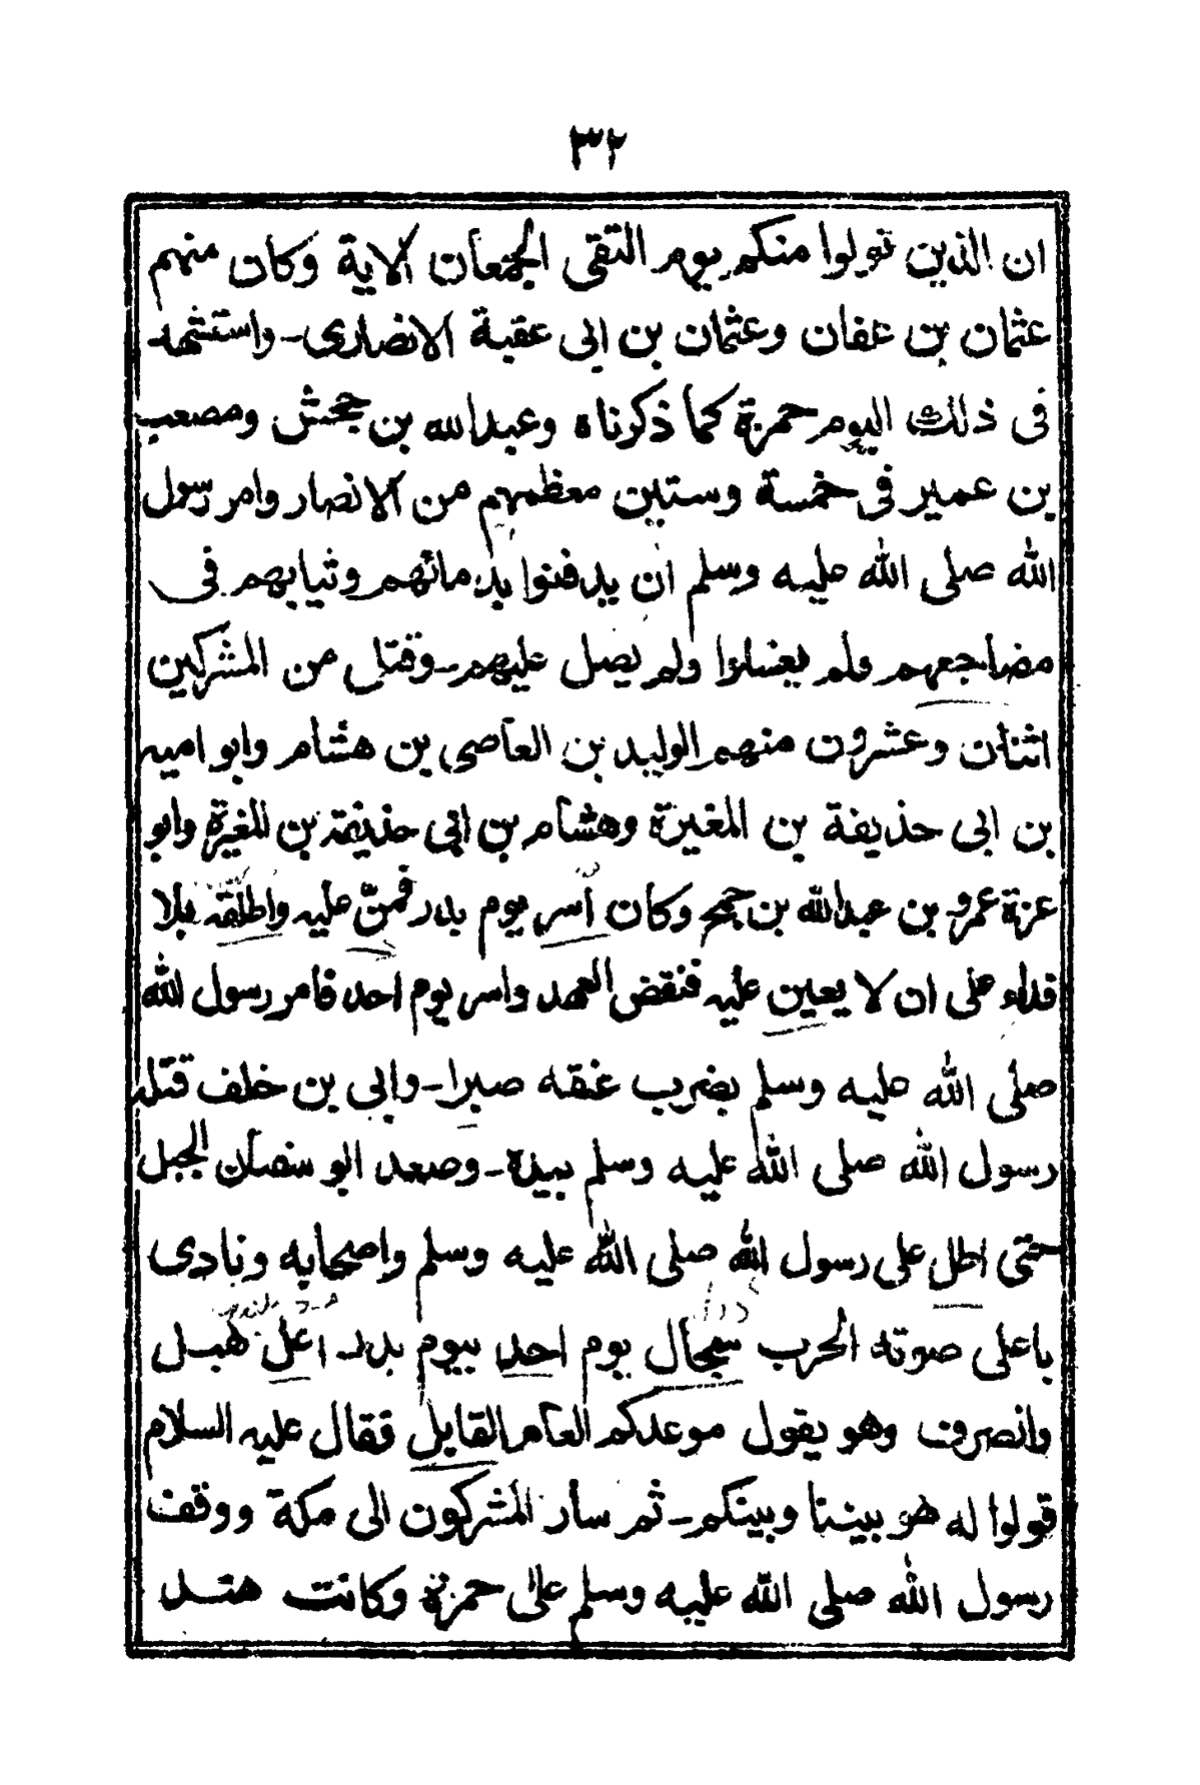 ٣٢
ان الذين تولوا منكم يوم التقى الجمعان الاية وكان منهم
عثمان بن عفان وعثمان بن ابى عقبة الانصارى - واستشهد
فى ذلك اليوم حمزة كما ذكرناه وعبدالله بن جحش ومصعب
بن عمير فى خمسة وستين معظمهم من الانصار وامر رسول
الله صلى الله عليه وسلم ان يدفنوا بدمائهم وثيابهم فى
مضاجعهم ولم يغسلوا ولم يصل عليهم - وقتل من المشركين
اثنان وعشرون منهم الوليد بن العاصى بن هشام وابو اميه
بن ابى حذيفة بن المغيرة وهشام بن ابى حذيفة بن المغيرة وابو
عزة عمرو بن عبدالله بن جمح وكان أسر يوم بدر فمنّ عليه واطلقه بلا
فداء على ان لا يعين عليه فنقض العهد واسر يوم احد فامر رسول الله
صلى الله عليه وسلم بضرب عنقه صبرا - وابى بن خلف قتله
رسول الله صلى الله عليه وسلم بيده - وصعد ابو سفيان الجبل
حتى اطل على رسول الله صلى الله عليه وسلم واصحابه ونادى
باعلى صوته الحرب سجال يوم احد بيوم بدر - اعل هبل
وانصرف وهو يقول موعدكم العام القابل فقال عليه السلام
قولوا له هو بيننا وبينكم - ثم سار المشركون الى مكة ووقف
رسول الله صلى الله عليه وسلم على حمزة وكانت هند